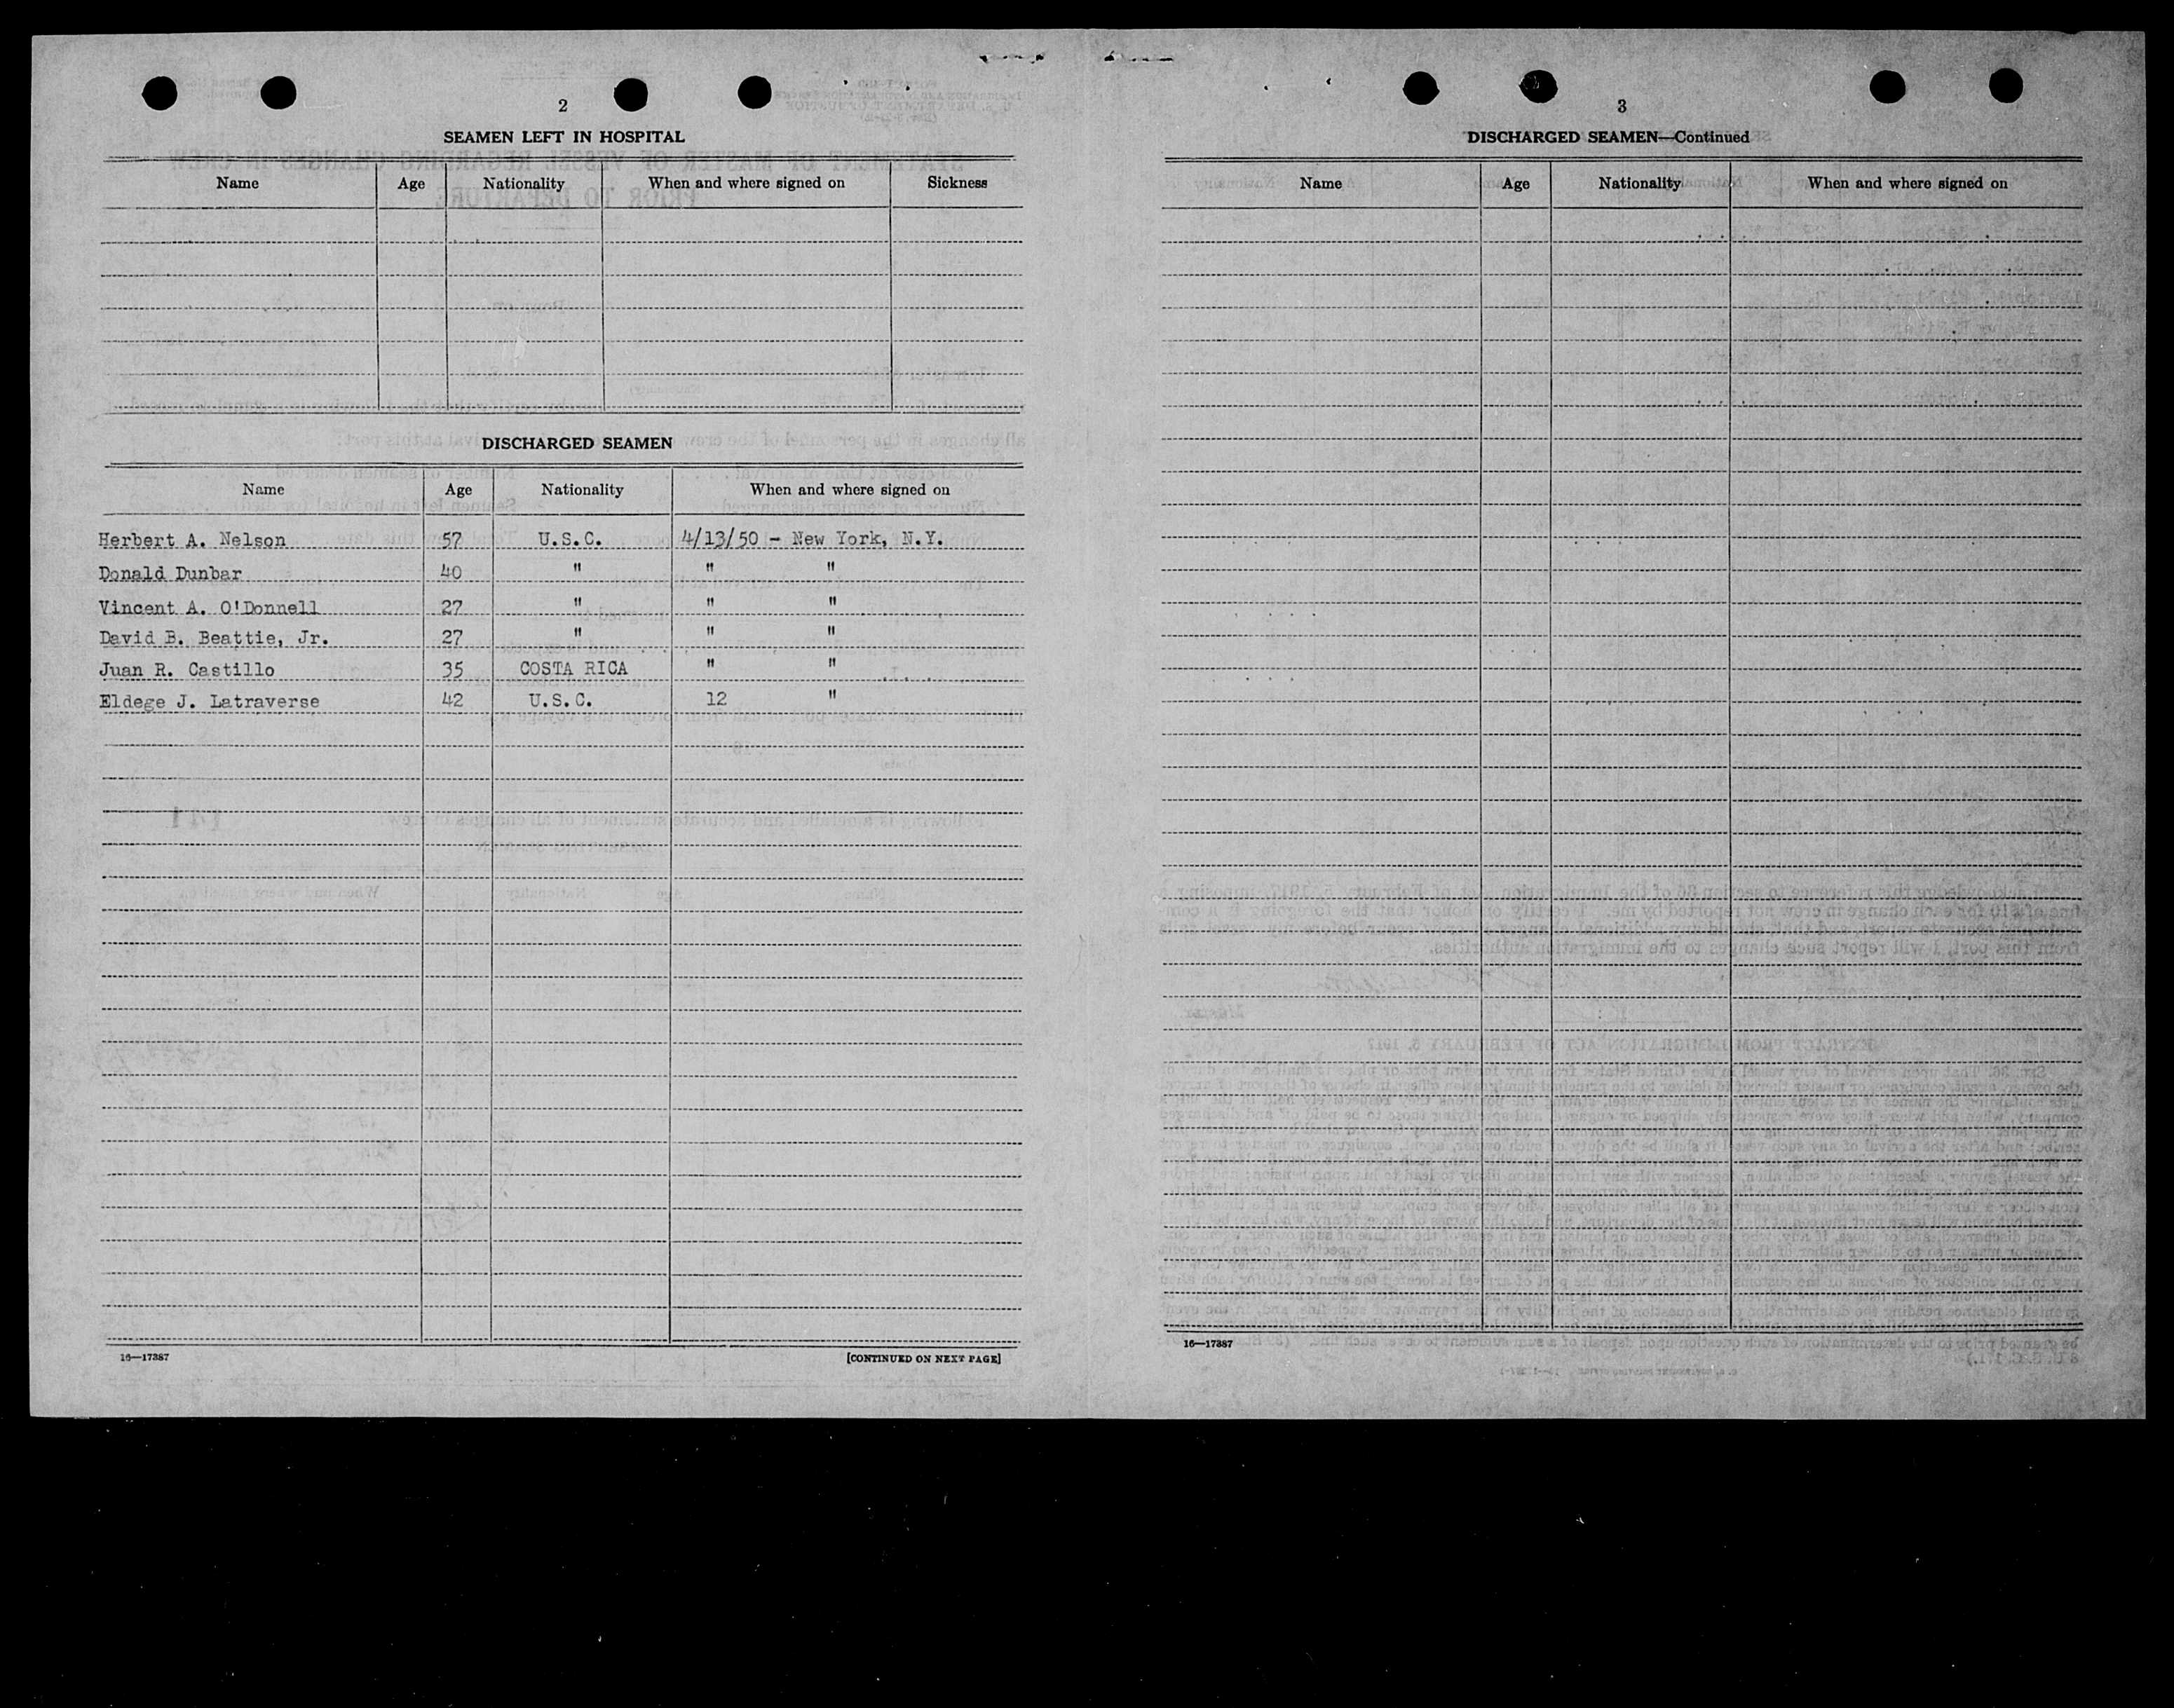 2
SEAMEN LEFT IN HOSPITAL
Name Age Nationality When and where signed on Sickness
DISCHARGED SEAMEN
Name Age Nationality When and where signed on
Herbert A. Nelson 57 U.S.C. 4/13/50 - New York, N.Y.
Donald Dunbar 40 " " "
Vincent A. O'Donnell 27 " " "
David B. Beattie, Jr. 27 " " "
Juan R. Castillo 35 COSTA RICA " "
Eldege J. Latraverse 42 U.S.C. 12 "
16—17387 [CONTINUED ON NEXT PAGE]
3
DISCHARGED SEAMEN—Continued
Name Age Nationality When and where signed on
16—17387